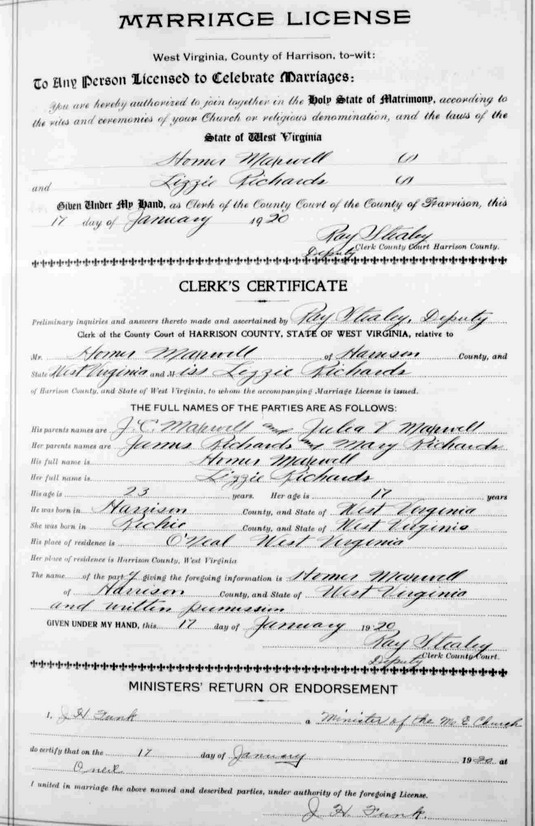 MARRIAGE LICENSE
West Virginia, County of Harrison, to-wit:
To Any Person Licensed to Celebrate Marriages:
You are hereby authorized to join together in the Holy State of Matrimony, according to
the rites and ceremonies of your Church or religious denomination, and the laws of the
State of West Virginia
Homer Maxwell
and Lizzie Richards
Given Under My Hand, as Clerk of the County Court of the County of Harrison, this
17 day of January 1920
Ray Stealey
Deputy Clerk County Court Harrison County.
CLERK'S CERTIFICATE
Preliminary inquiries and answers thereto made and ascertained by Ray Stealey, Deputy
Clerk of the County Court of HARRISON COUNTY, STATE OF WEST VIRGINIA, relative to
Mr. Homer Maxwell of Harrison County, and
State West Virginia and Miss Lizzie Richards
of Harrison County, and State of West Virginia, to whom the accompanying Marriage License is issued.
THE FULL NAMES OF THE PARTIES ARE AS FOLLOWS:
His parents names are J. C. Maxwell and Julea V Maxwell
Her parents names are James Richards and Mary Richards
His full name is Homer Maxwell
Her full name is Lizzie Richards
His age is 23 years. Her age is 17 years
He was born in Harrison County, and State of West Virginia
She was born in Richie County, and State of West Virginia
His place of residence is O'Neal West Virginia
Her place of residence is Harrison County, West Virginia
The name of the party giving the foregoing information is Homer Maxwell
of Harrison County, and State of West Virginia
and written permission
GIVEN UNDER MY HAND, this 17 day of January 1920
Ray Stealey
Deputy Clerk County Court.
MINISTERS' RETURN OR ENDORSEMENT
I, J H Funk a Minister of the M. E Church
do certify that on the 17 day of January 1920 at
Oneil
I united in marriage the above named and described parties, under authority of the foregoing License.
J. H. Funk.